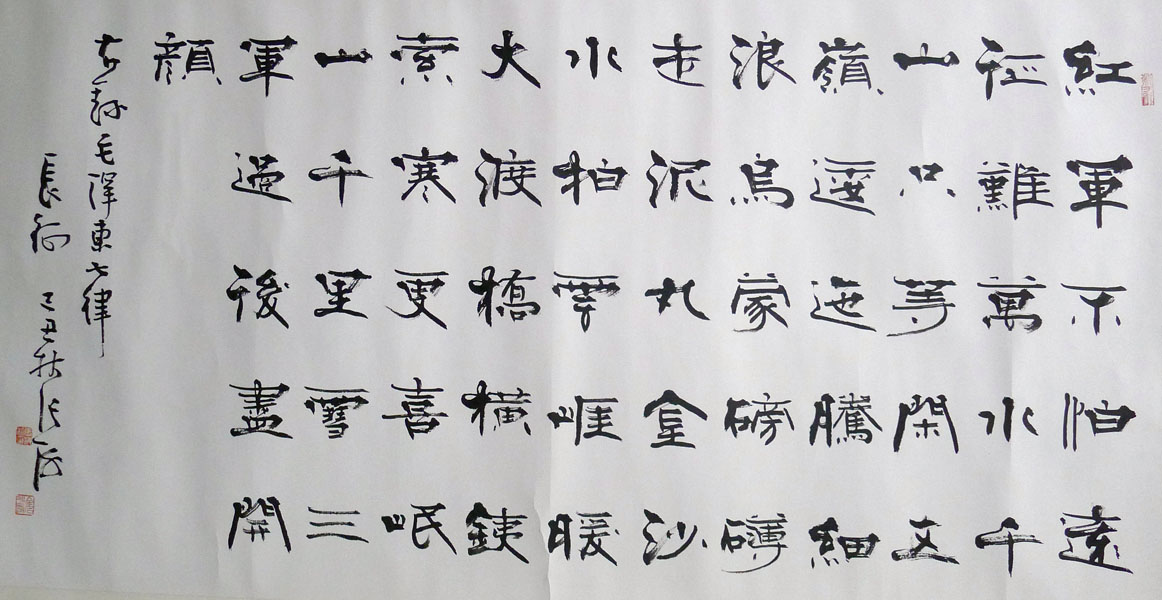 紅軍不怕遠
征難萬水千
山只等閑五
嶺逶迤騰細
浪烏蒙磅礴
走泥丸金沙
水拍雲崖暖
大渡橋橫銕
索寒更喜岷
山千里雪三
軍過後盡開
顏
右錄毛澤東七律
長征 己丑秋